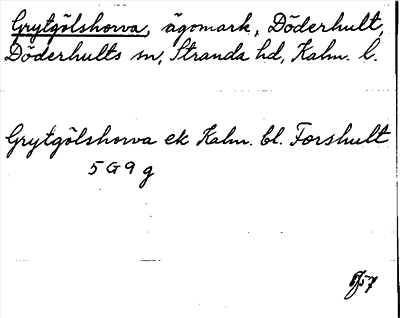 Grytgölshorva, ägomark, Döderhult,
Döderhults sn, Stranda hd, Kalm. l.
Grytgölshorva ek Kalm. bl. Forshult
5 G 9 g